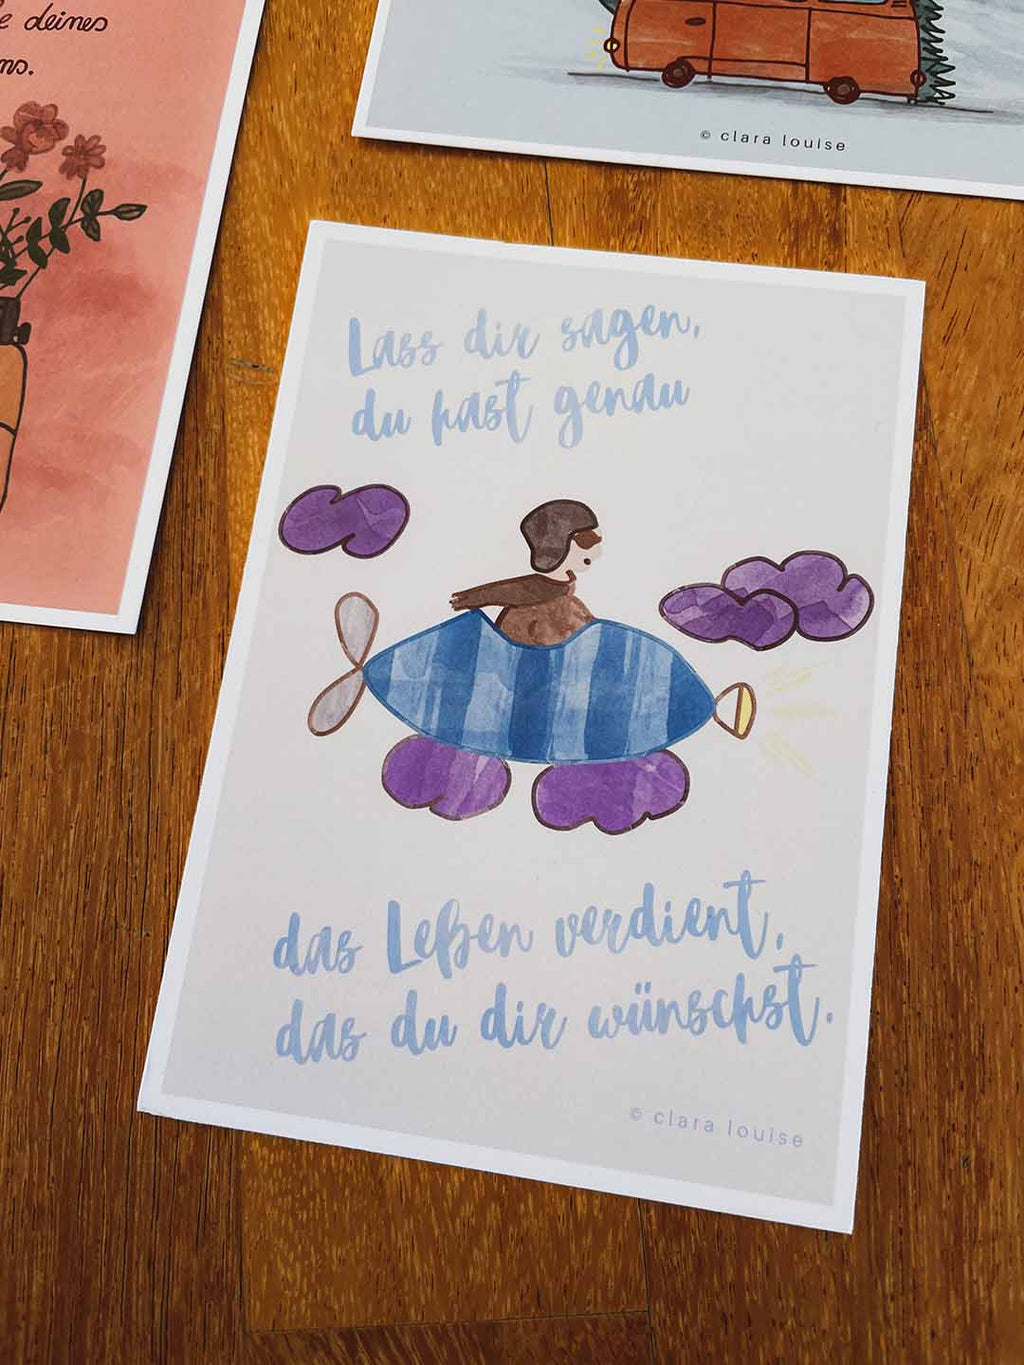 deines
© clara louise
Lass dir sagen,
du hast genau
das Leben verdient,
das du dir wünschst.
© clara louise